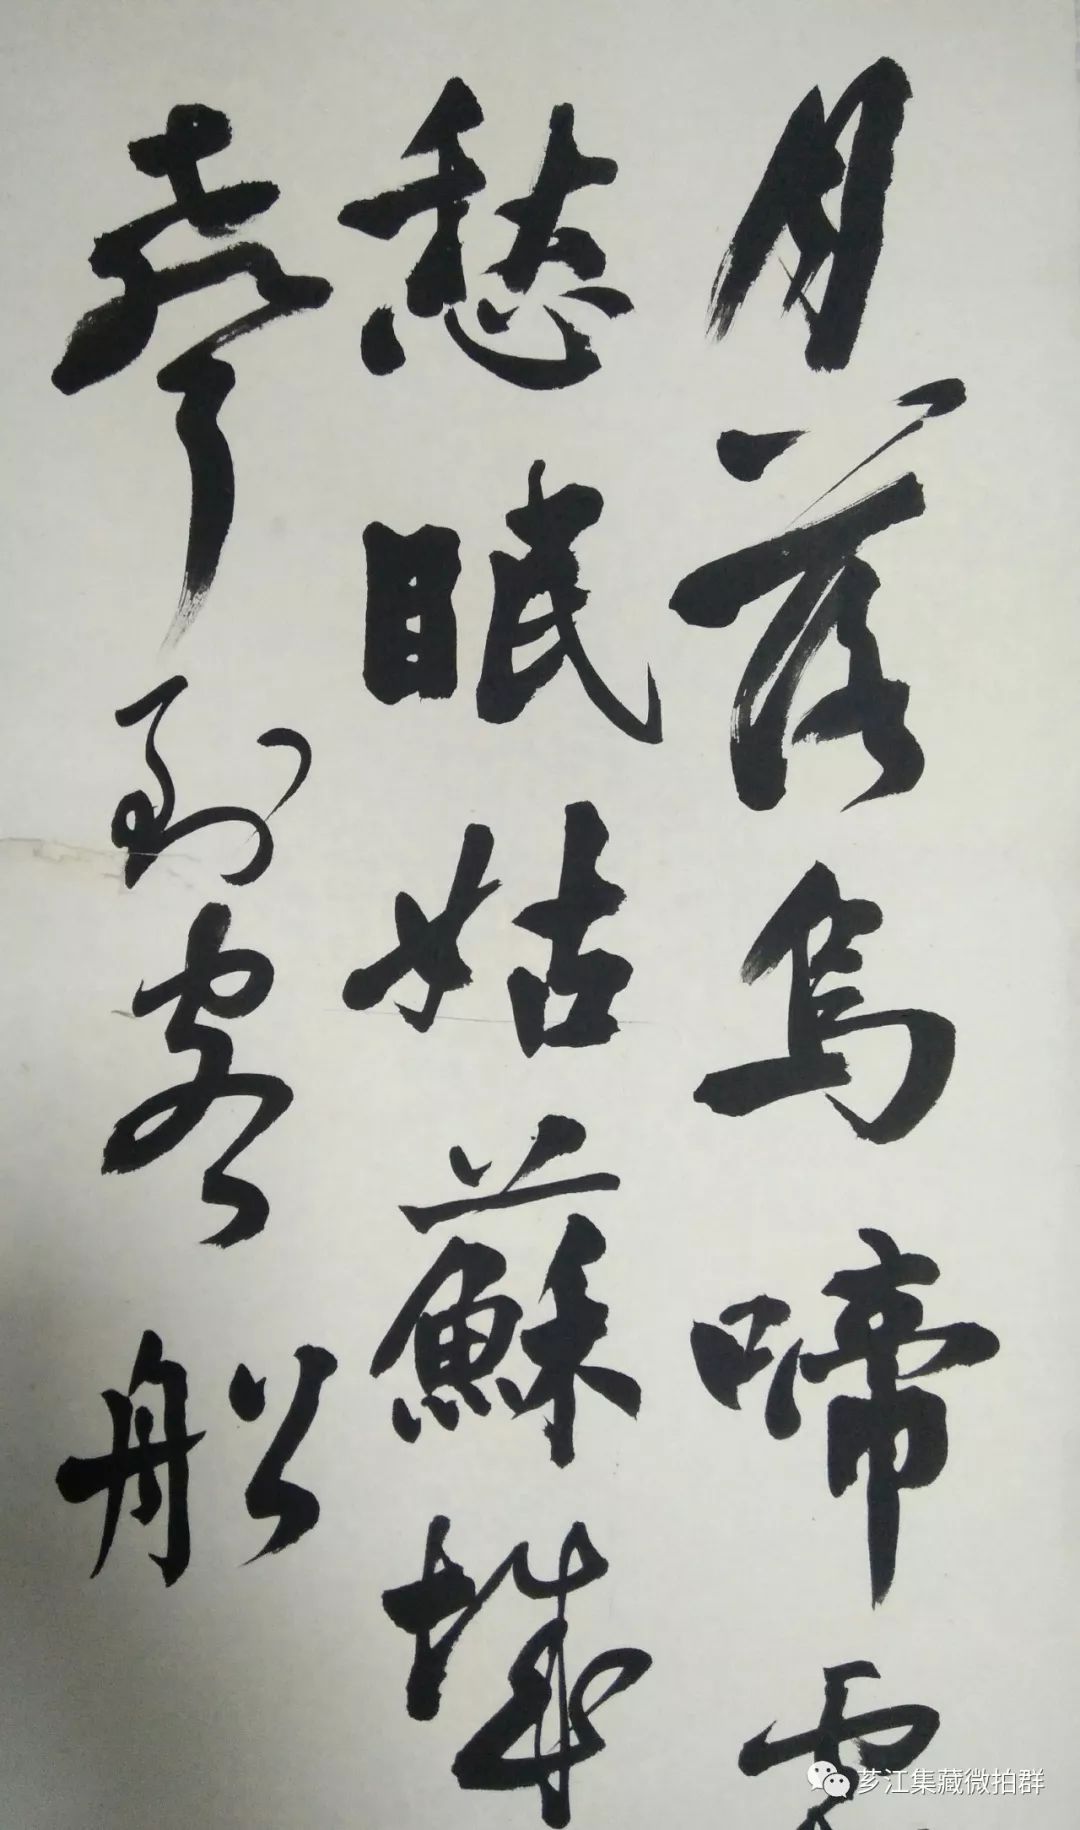 月落烏啼霜
愁眠姑蘇城
聲到客船
芗江集藏微拍群